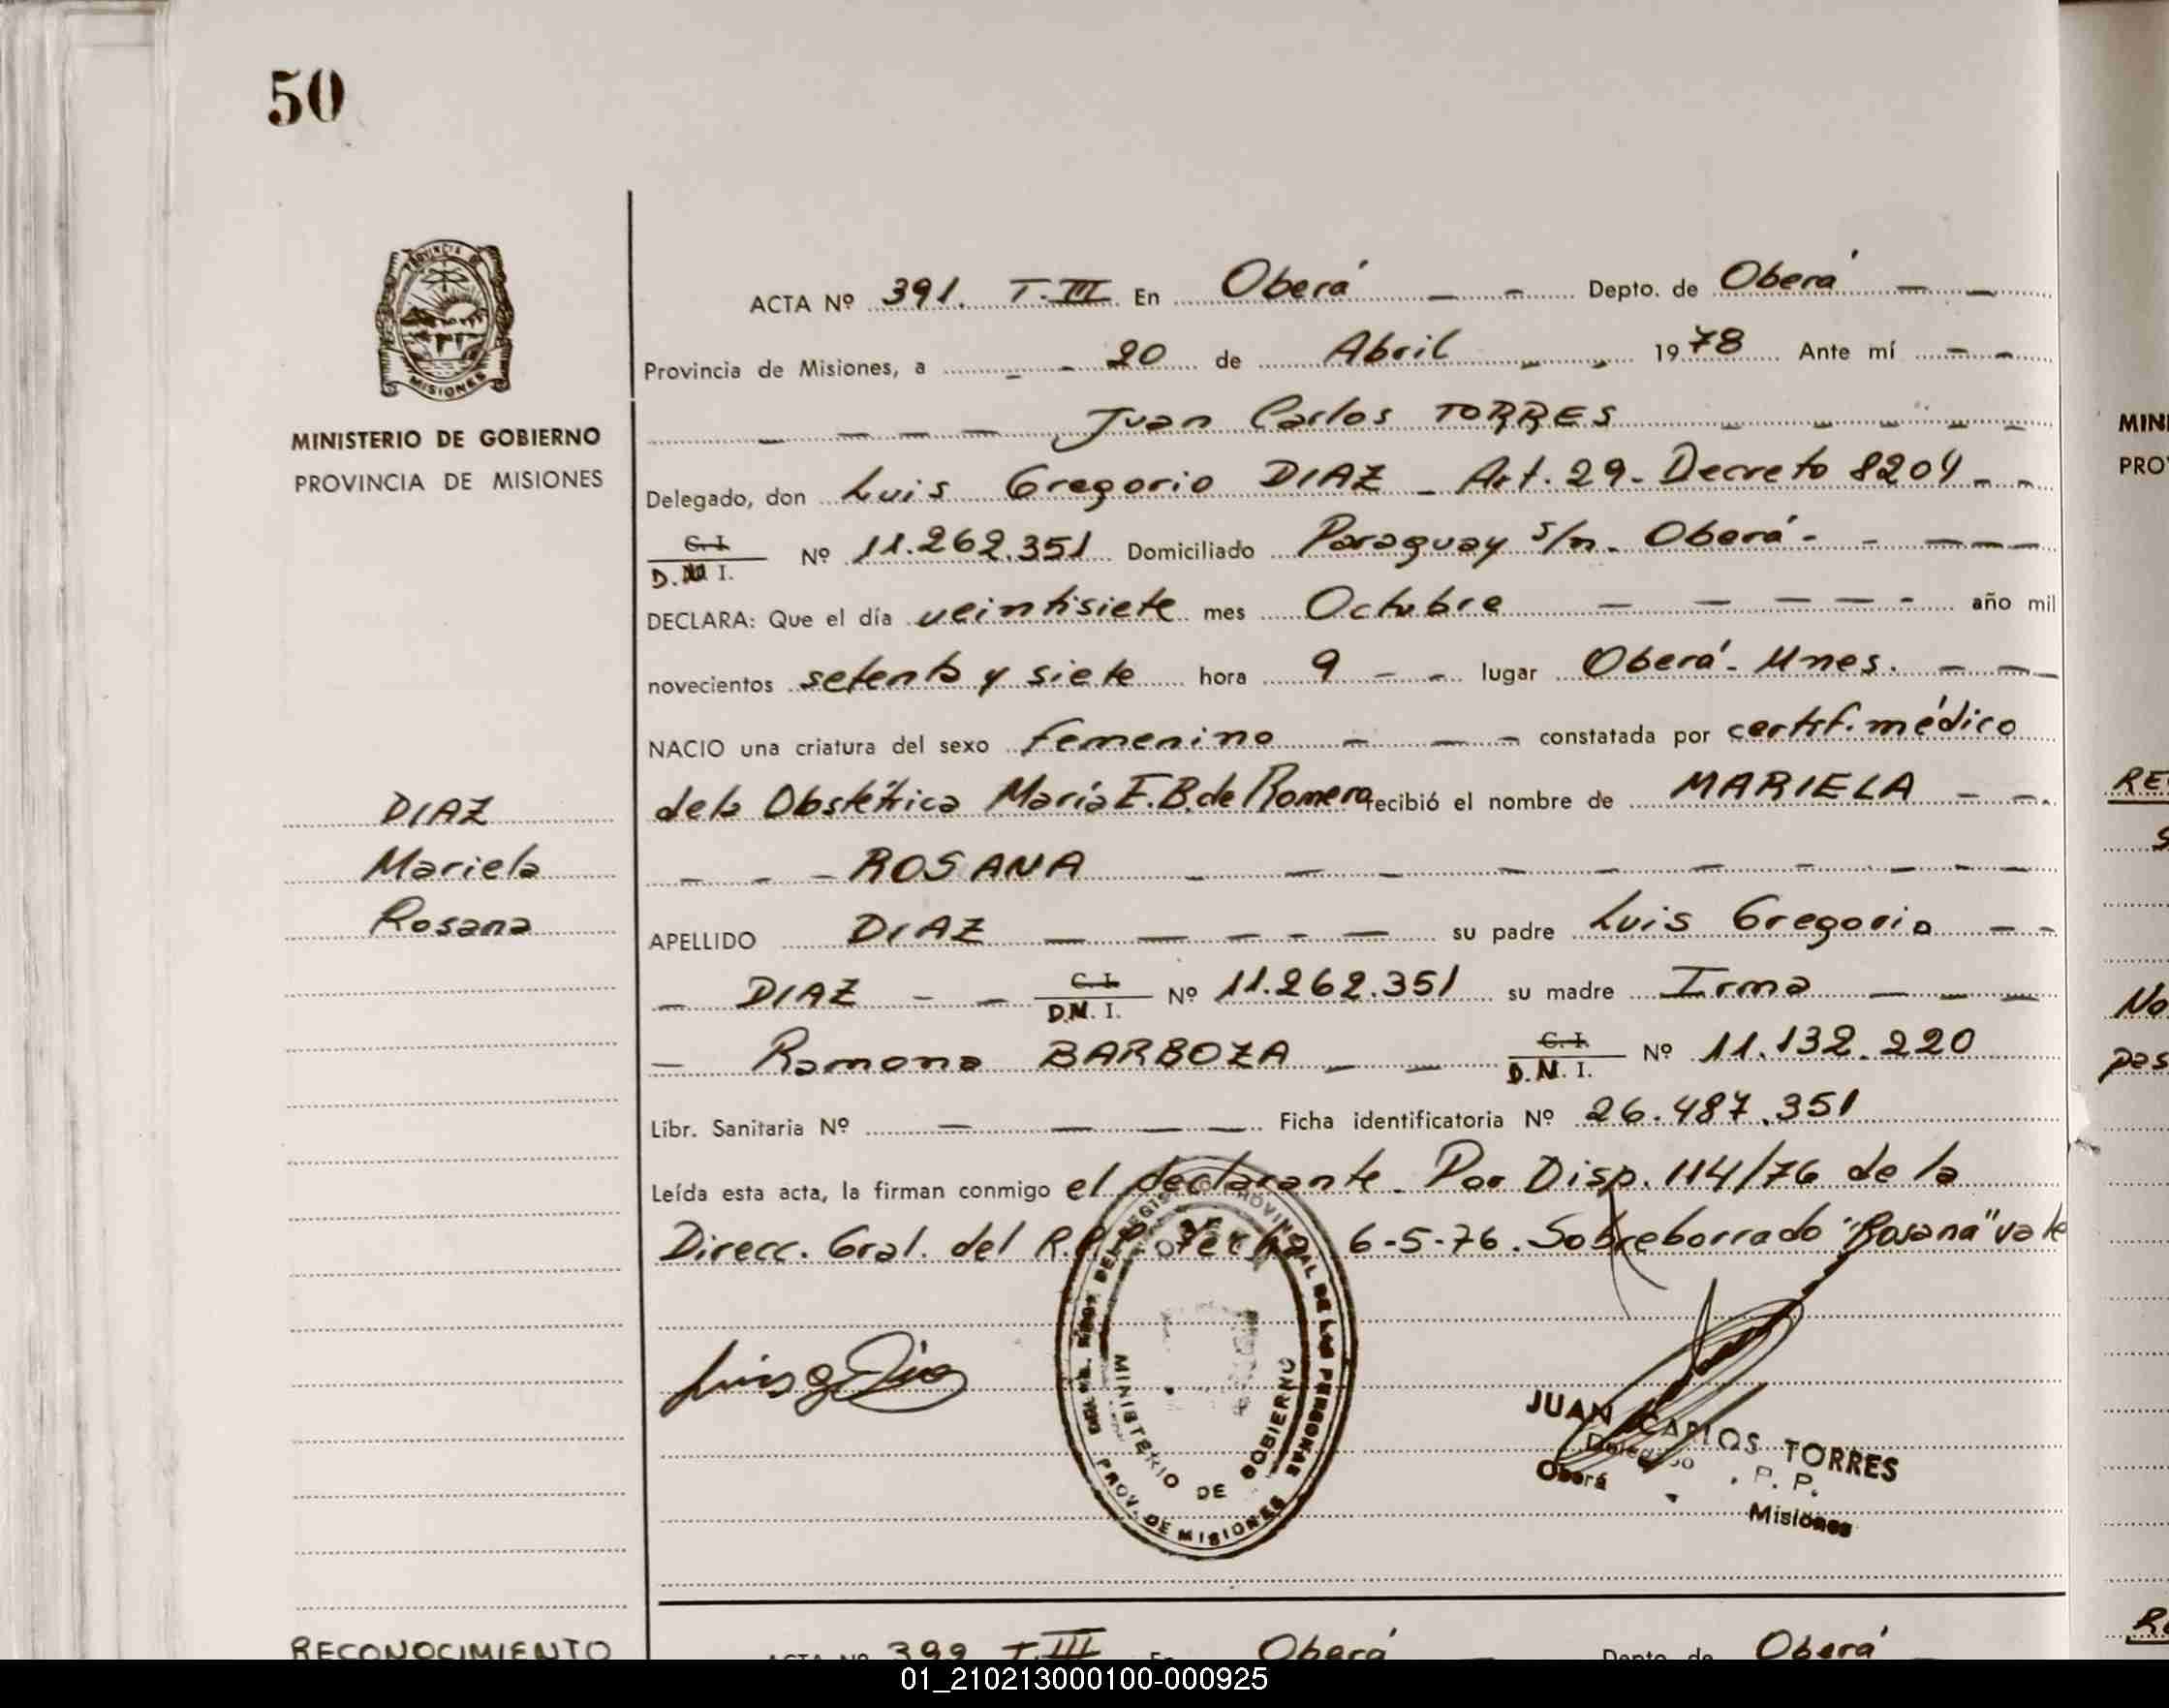 50
PROVINCIA DE
MISIONES
MINISTERIO DE GOBIERNO
PROVINCIA DE MISIONES
DIAZ
Mariela
Rosana
ACTA Nº 391. T. III En Oberá — — Depto. de Oberá — —
Provincia de Misiones, a - - 20 de Abril - - 1978 Ante mí - -
— — — — Juan Carlos TORRES — — — — —
Delegado, don Luis Gregorio DIAZ - Art. 29 - Decreto 8204 - -
C. I. / D.N. I. Nº 11.262.351 Domiciliado Paraguay s/n. Oberá - - — — —
DECLARA: Que el día veintisiete mes Octubre — — — — — - año mil
novecientos setenta y siete hora 9 - - lugar Oberá - Mnes. — —
NACIO una criatura del sexo femenino — — — constatada por certif. médico
de la Obstétrica María E. B. de Romero recibió el nombre de MARIELA — —
- - - ROSANA — — — — — — — — — —
APELLIDO DIAZ — — — - — su padre Luis Gregorio - -
— DIAZ - — C. I. / D.N. I. Nº 11.262.351 su madre Irma — — —
— Ramona BARBOZA — — C. I. / D.N. I. Nº 11.132.220
Libr. Sanitaria Nº — — — — Ficha identificatoria Nº 26.487.351
Leída esta acta, la firman conmigo el declarante. Por Disp. 114/76 de la
Direcc. Gral. del R.P.P. Fecha 6-5-76. Sobreborrado "Rosana" vale
Luis G Diaz
REGISTRO PROVINCIAL DE LAS PERSONAS
MINISTERIO DE GOBIERNO
PROV. DE MISIONES
JUAN CARLOS TORRES
Delegado P. P.
Oberá Misiones
RECONOCIMIENTO
ACTA Nº 392 T. III En Oberá — Depto. de Oberá —
MINI
PRO
RE
No
pas
01_210213000100-000925